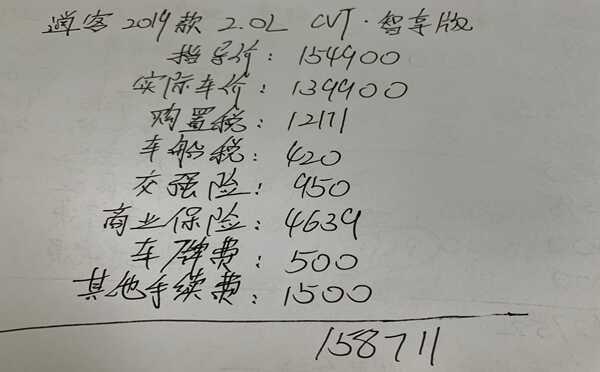 逍客 2019款 2.0L CVT·智享版
指导价: 154900
实际车价: 139900
购置税: 12171
车船税: 420
交强险: 950
商业保险: 4639
车牌费: 500
其他手续费: 1500
158711